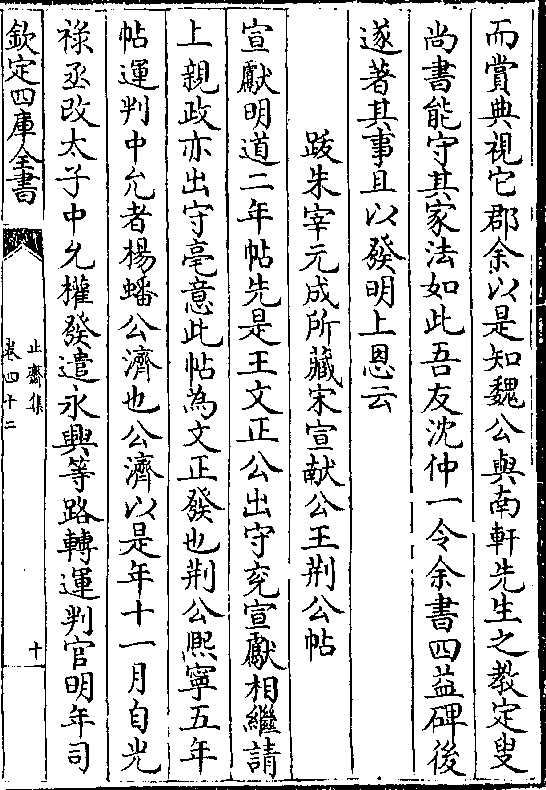 而賞典視它郡余以是知魏公與南軒先生之教定叟
尚書能守其家法如此吾友沈仲一令余書四益碑後
遂著其事且以發明上恩云
跋朱宰元成所藏宋宣献公王荆公帖
宣獻明道二年帖先是王文正公出守兖宣獻相繼請
上親政亦出守亳意此帖為文正發也荆公熙寧五年
帖運判中允者楊蟠公濟也公濟以是年十一月自光
祿丞改太子中允權發遣永興等路轉運判官明年司
欽定四庫全書
止齋集
卷四十二
十